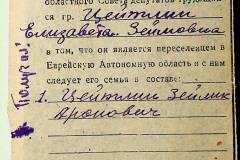 областного Совета депутатов трудящих-
ся гр. Цейтлин
Елизавета Зеймовна
в том, что он является переселенцем в
Еврейскую Автономную область и с ним
следует его семья в составе:
1. Цейтлин Зейлик
Аронович